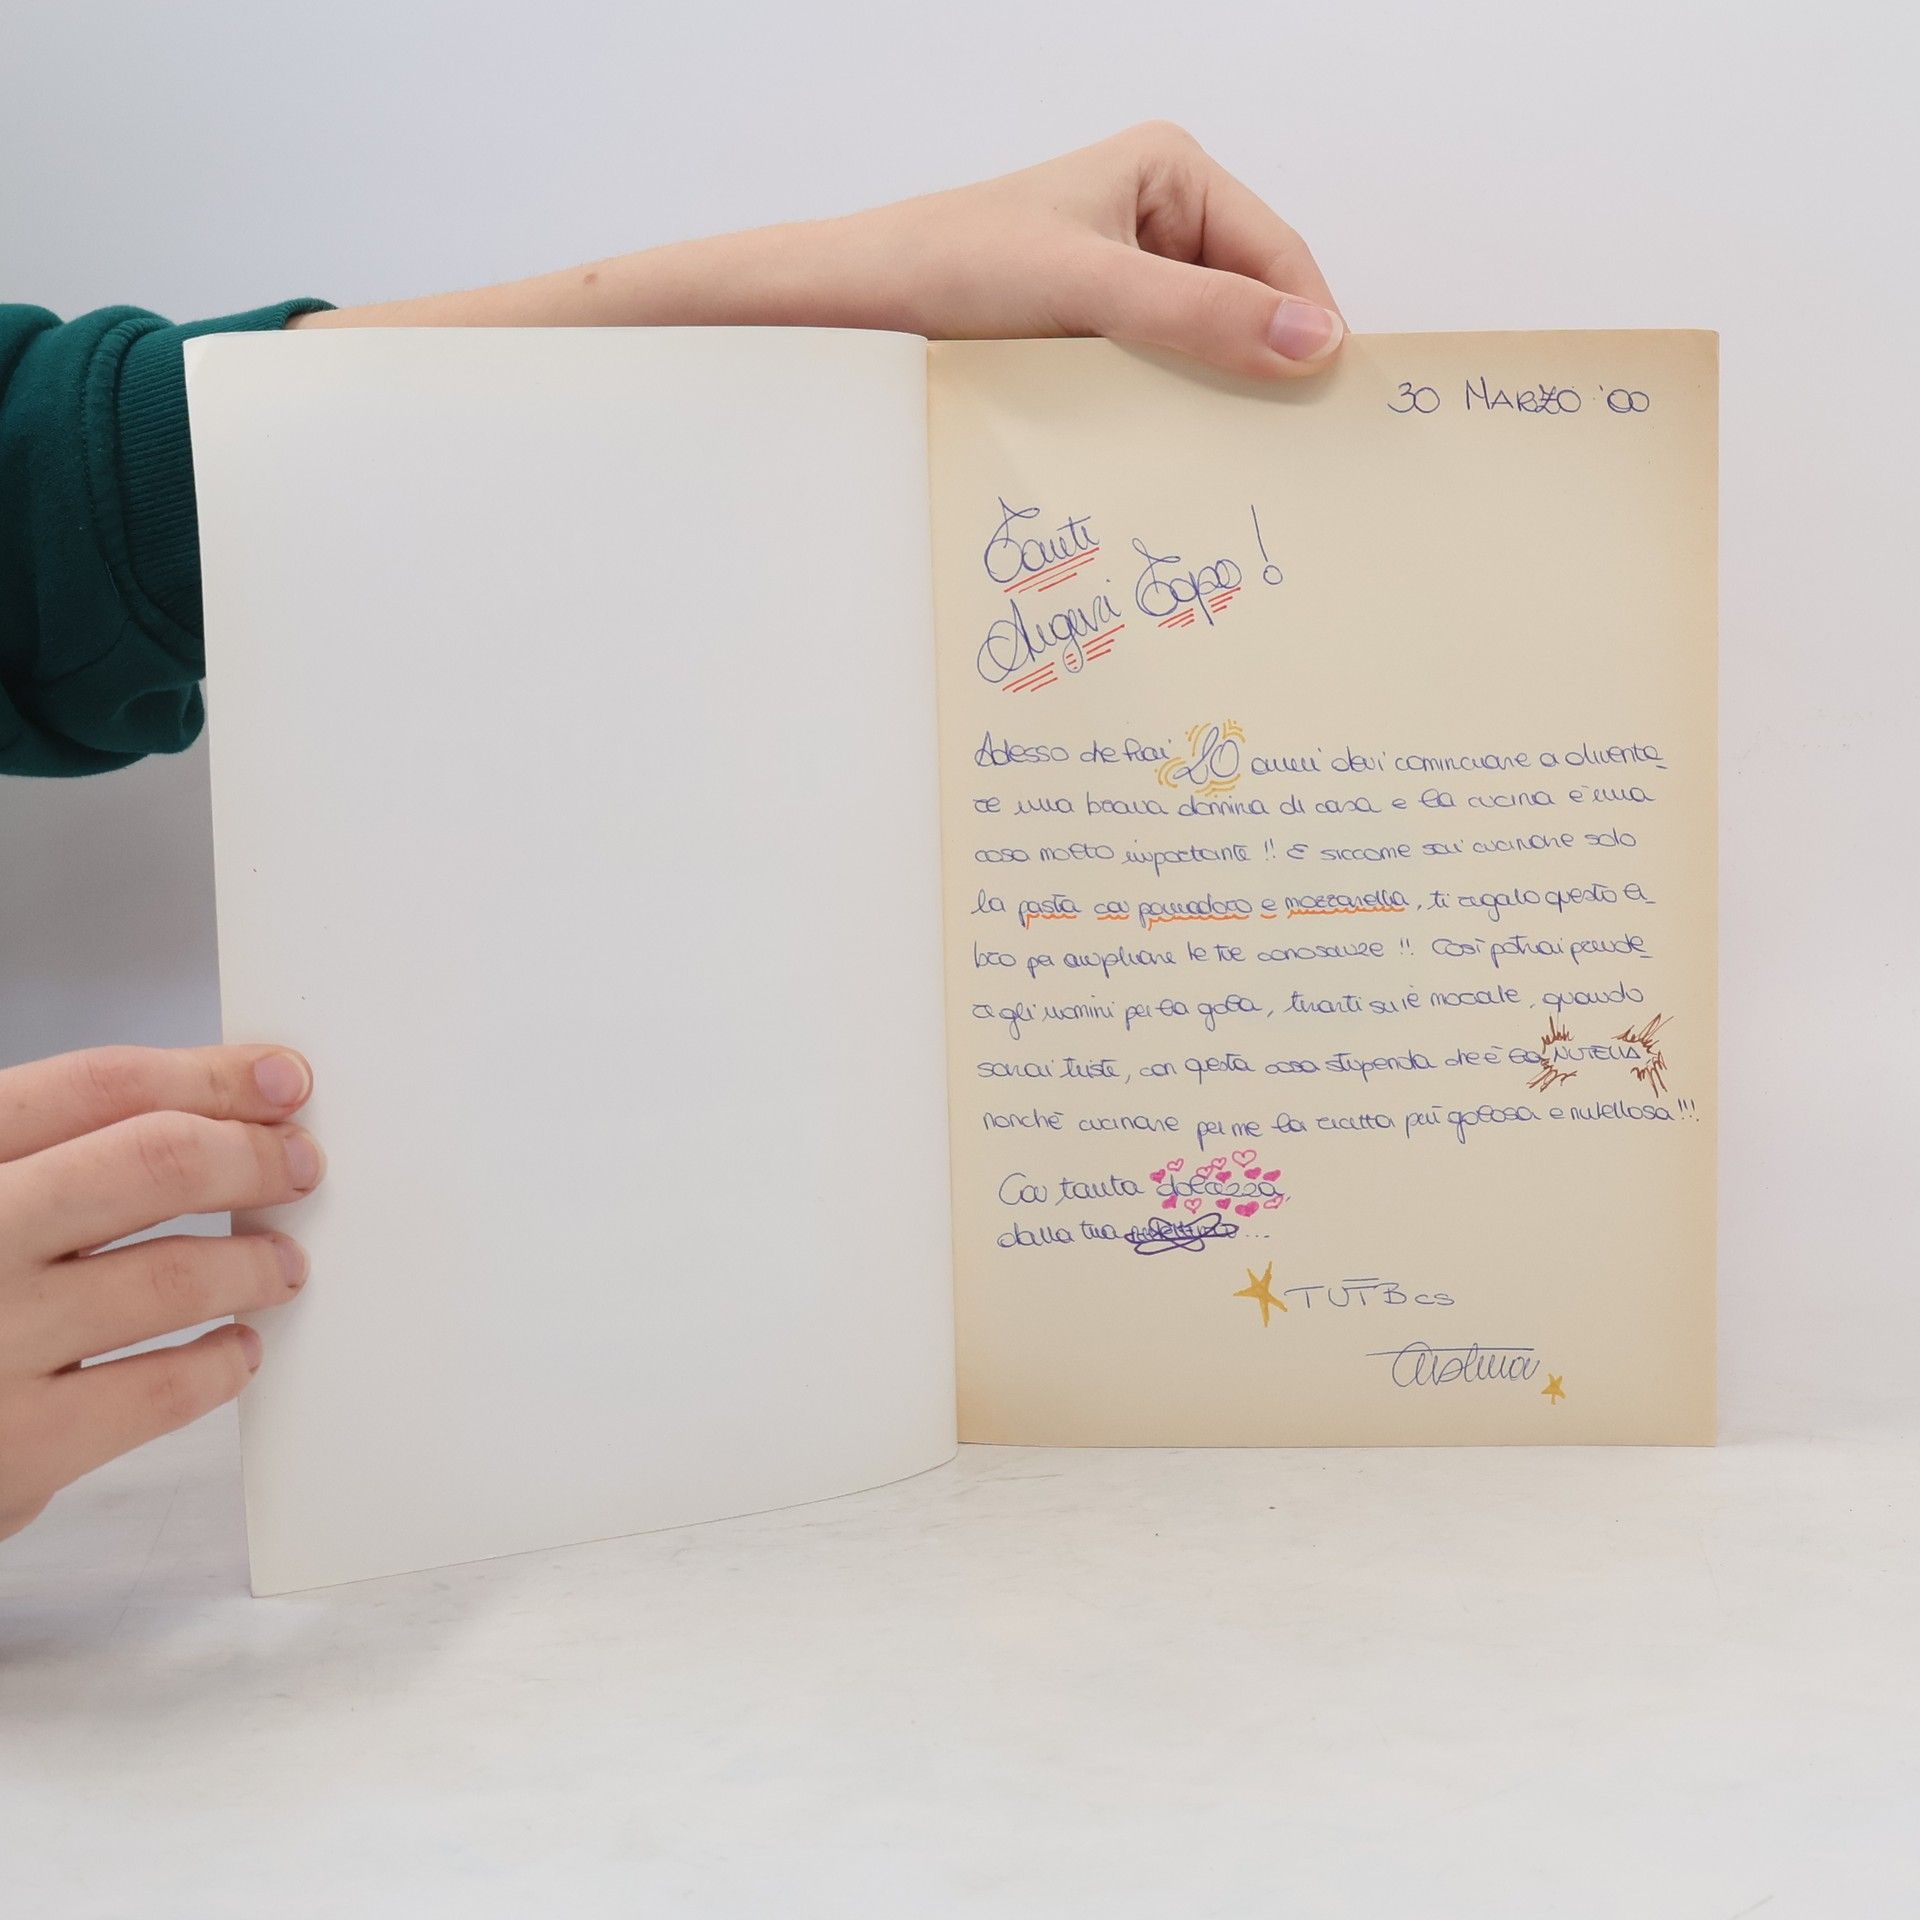 30 MARZO '00
Tanti
Auguri Topo!
Adesso che hai 20 anni devi cominciare a diventa-
re una brava donnina di casa e la cucina è una
cosa molto importante!! E siccome sai cucinare solo
la pasta col pomodoro e mozzarella, ti regalo questo li-
bro per ampliare le tue conoscenze!! Così potrai prende-
re gli uomini per la gola, tirarti su il morale, quando
sarai triste, con questa cosa stupenda che è la NUTELLA
nonché cucinare per me la ricetta più golosa e nutellosa!!!
Con tanta dolcezza,
dalla tua ...
TUTB cs